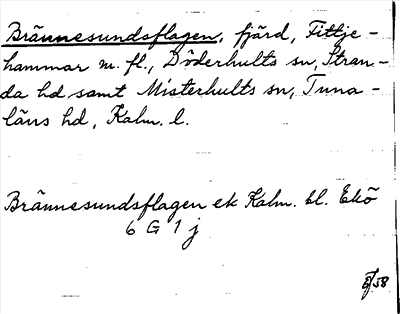 Brännesundsflagen, fjärd, Fittje-
hammar m. fl., Döderhults sn, Stran-
da hd samt Misterhults sn, Tuna-
läns hd, Kalm. l.
Brännesundsflagen ek Kalm. bl. Ekö
6 G 1 j
58